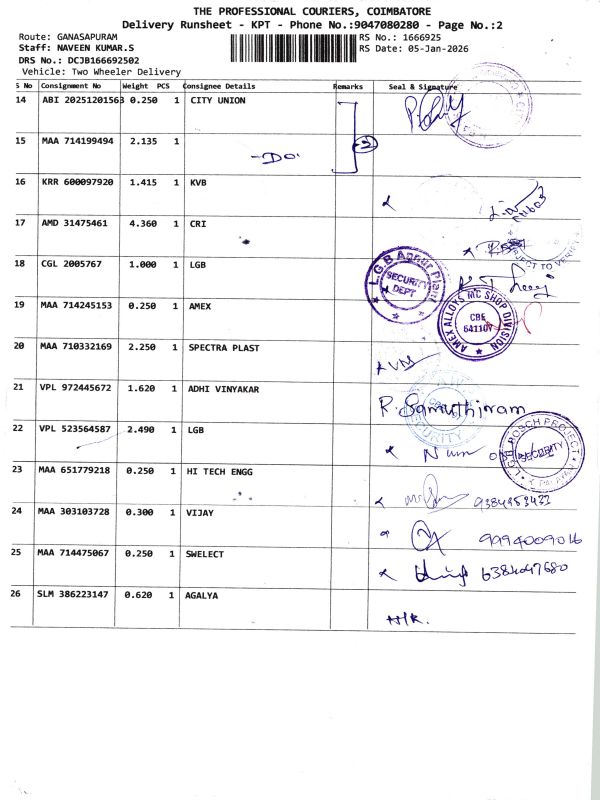 THE PROFESSIONAL COURIERS, COIMBATORE
Delivery Runsheet - KPT - Phone No.:9047080280 - Page No.:2
Route: GANASAPURAM RS No.: 1666925
Staff: NAVEEN KUMAR.S RS Date: 05-Jan-2026
DRS No.: DCJB166692502
Vehicle: Two Wheeler Delivery
S No Consignment No Weight PCS Consignee Details Remarks Seal & Signature
14 ABI 20251201563 0.250 1 CITY UNION
15 MAA 714199494 2.135 1
-DO-
16 KRR 600097920 1.415 1 KVB
17 AMD 31475461 4.360 1 CRI
18 CGL 2005767 1.000 1 LGB
L.G.B Annur Plant
SECURITY DEPT
19 MAA 714245153 0.250 1 AMEX
AMEX ALLOYS MC SHOP DIVISION
CBE
641107
20 MAA 710332169 2.250 1 SPECTRA PLAST
21 VPL 972445672 1.620 1 ADHI VINYAKAR
R. Samuthiram
SECURITY
22 VPL 523564587 2.490 1 LGB
L.G.B BOSCH PROJECT
SECURITY
23 MAA 651779218 0.250 1 HI TECH ENGG
24 MAA 303103728 0.300 1 VIJAY
9994009016
25 MAA 714475067 0.250 1 SWELECT
26 SLM 386223147 0.620 1 AGALYA